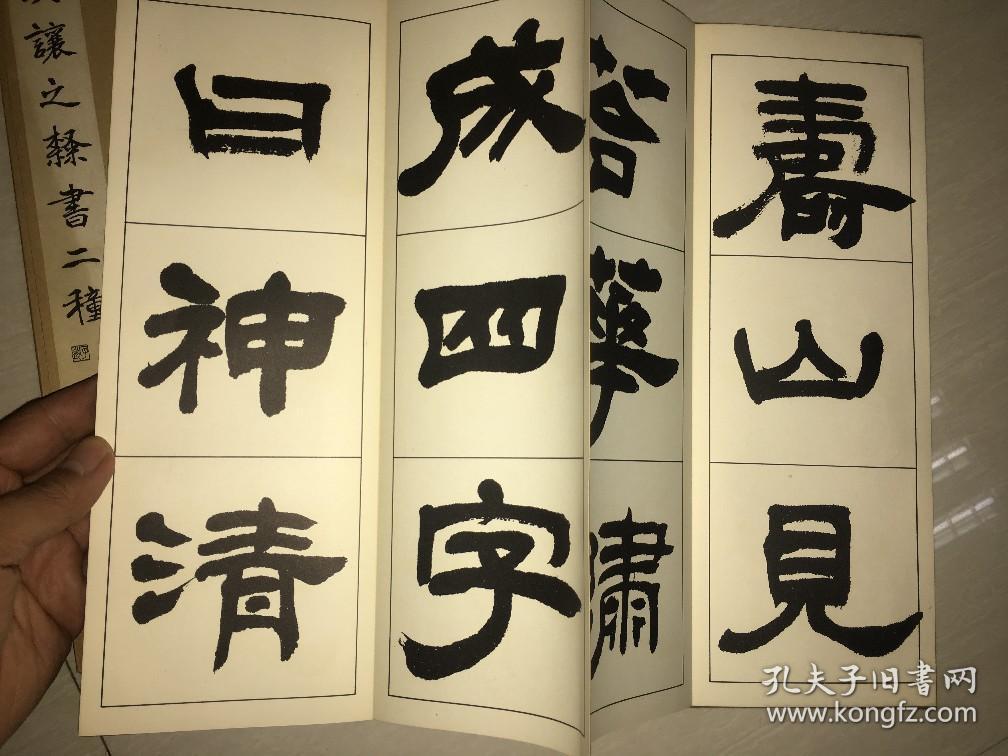 壽山見
華嘯
成四字
曰神清
讓之隸書二種
孔夫子旧書网
www.kongfz.com